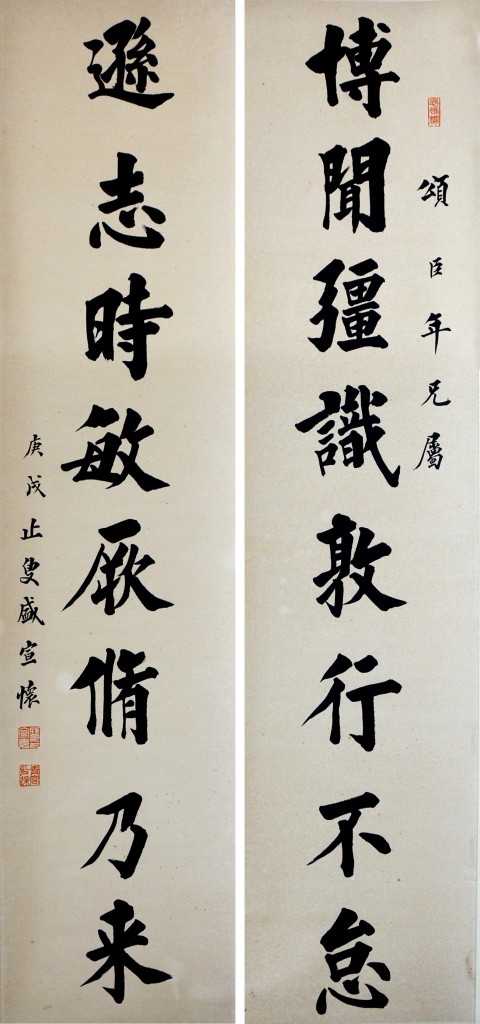 頌臣年兄屬
博聞彊識敦行不怠
遜志時敏厥脩乃来
庚戌止叟盛宣懷